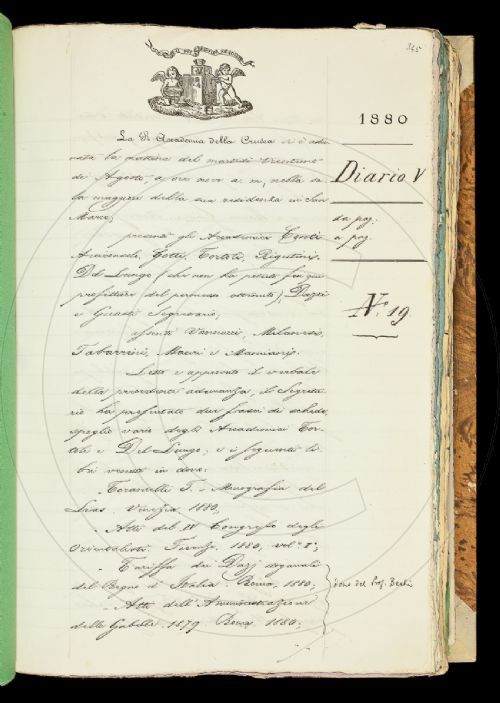 345
1880
Diario V
da pag.
a pag.
N.º 19
La R. Accademia della Crusca si è adu
nata la mattina del martedì
di Agosto, a ore nove a. m., nella sa
la maggiore della sua residenza in San
Marco;
presenti gli Accademici Conti
Gotti, Tortoli, Rigutini,
Del Lungo (che non ha potuto fin qui
profittare del permesso ottenuto), Dazzi
e Guasti Segretario;
assenti Vannucci, Milanesi,
Tabarrini, Mauri e Mamiani.
Letto e approvato il verbale
della precedente adunanza, il Segreta
rio ha presentato due di schede,
spoglio vario degli Accademici Tor
toli e Del Lungo; e i seguenti li
bri venuti in dono:
T. - Monografia del
Lias. Venezia, 1880,
- Atti del IV Congresso degli
Orientalisti. Firenze, 1880, vol. I;
- Tariffa dei Dazj doganali
del Regno d'Italia. Roma, 1880,
- Atti dell'Amministrazione
delle Gabelle. 1879. Roma. 1880;
dono del